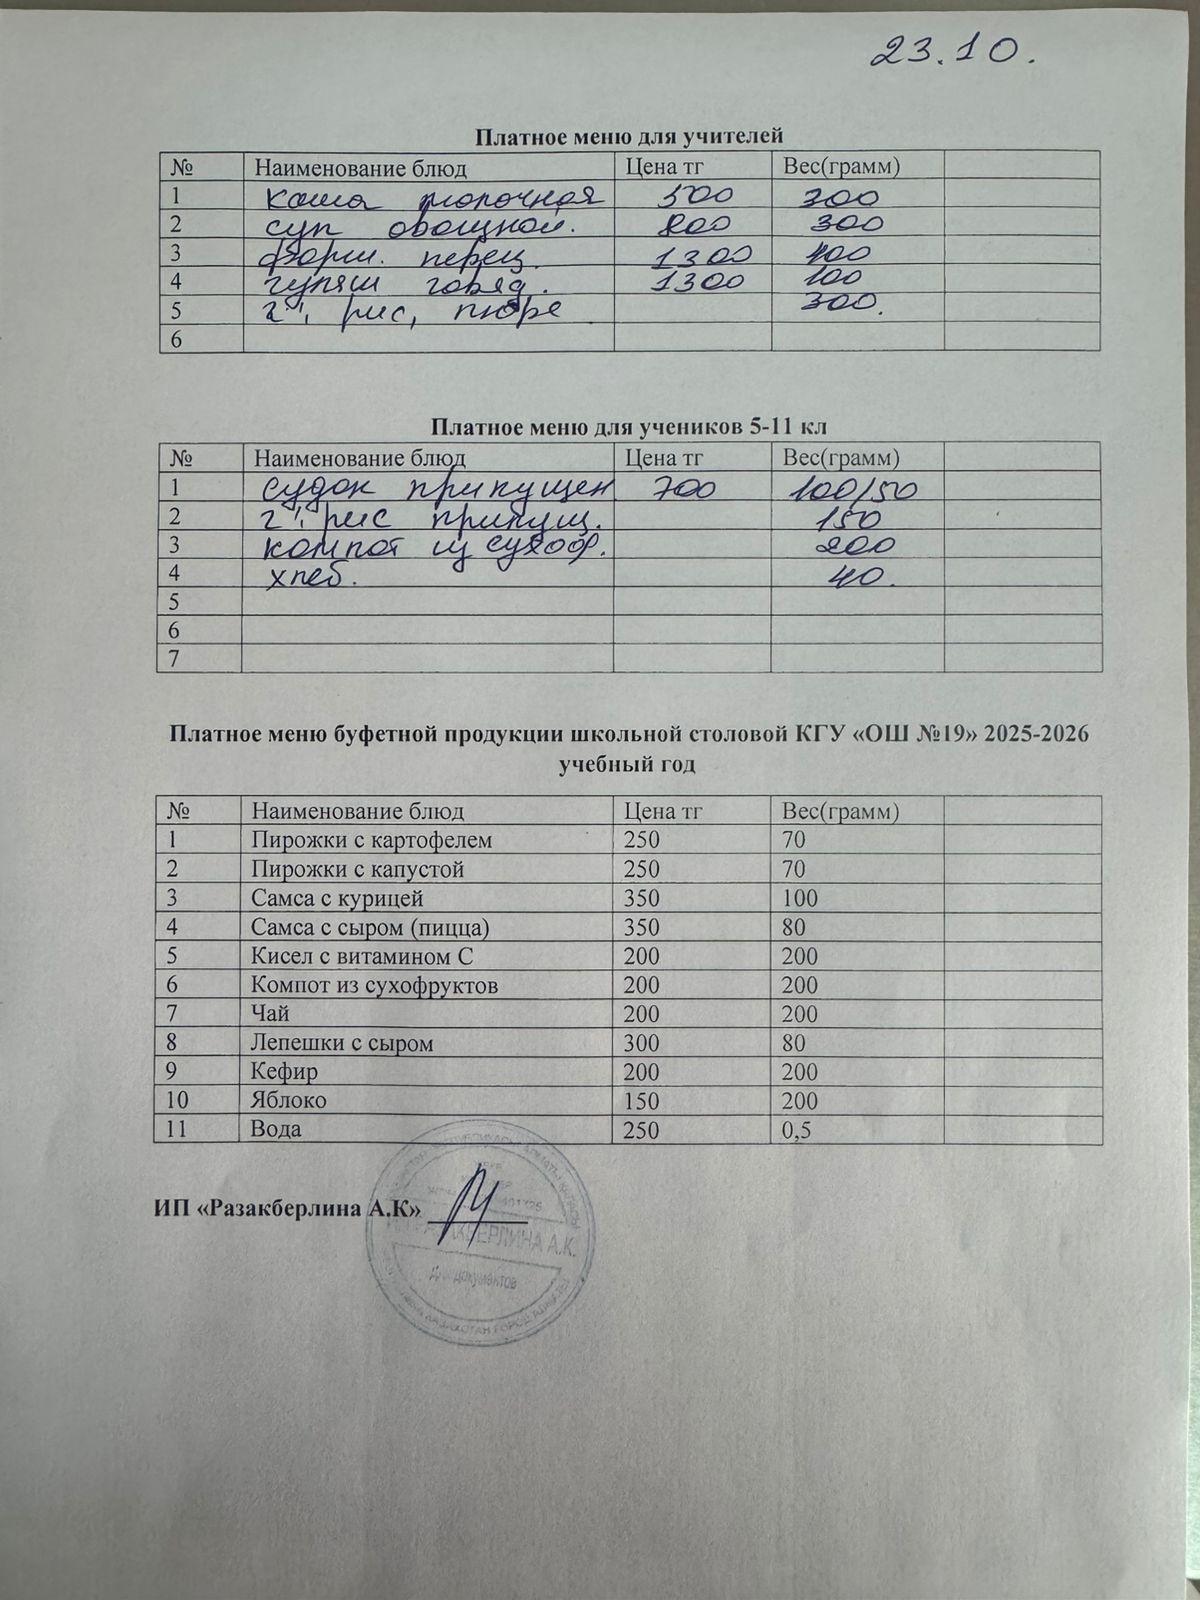 23.10.
Платное меню для учителей
№ Наименование блюд Цена тг Вес(грамм)
1 каша молочная 500 300
2 суп овощной. 800 300
3 фарш. перец. 1300 400
4 гуляш говяд. 1300 100
5 г", рис, пюре 300.
6
Платное меню для учеников 5-11 кл
№ Наименование блюд Цена тг Вес(грамм)
1 судок припущен 700 100/50
2 г", рис припущ. 150
3 компот из сухофр. 200
4 хлеб. 40.
5
6
7
Платное меню буфетной продукции школьной столовой КГУ «ОШ №19» 2025-2026
учебный год
№ Наименование блюд Цена тг Вес(грамм)
1 Пирожки с картофелем 250 70
2 Пирожки с капустой 250 70
3 Самса с курицей 350 100
4 Самса с сыром (пицца) 350 80
5 Кисел с витамином С 200 200
6 Компот из сухофруктов 200 200
7 Чай 200 200
8 Лепешки с сыром 300 80
9 Кефир 200 200
10 Яблоко 150 200
11 Вода 250 0,5
ИП «Разакберлина А.К»
РАЗАКБЕРЛИНА А.К.
Для документов